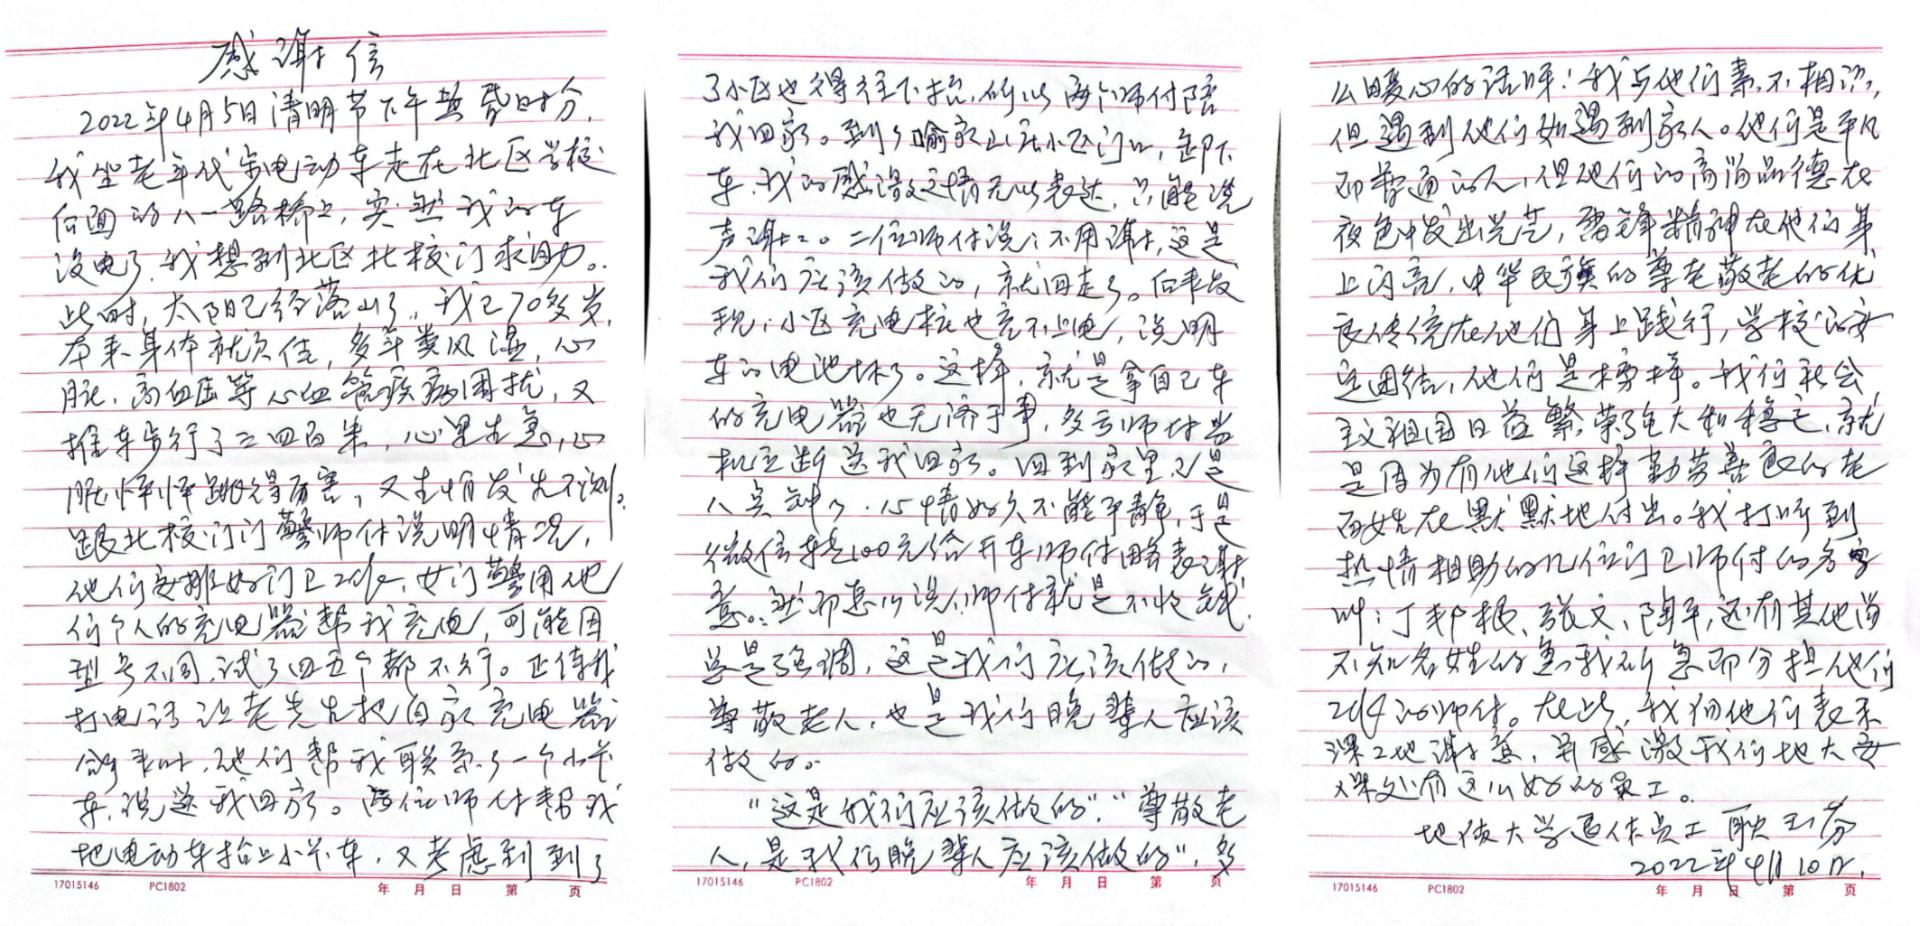 感谢信
2022年4月5日清明节下午黄昏时分,
我坐老年代步电动车走在北区学校
后面的八一路桥上,突然我的车
没电了.我想到北区北校门求助。
此时,太阳已经落山了,我已70多岁,
本来身体就欠佳,多年类风湿,心
脏,高血压等心血管疾病困扰,又
推车步行了三四百米,心里生急,心
脏怦怦跳得厉害,又生怕发生不测。
跟北校门门警师付说明情况,
他们安排好门卫工作,女门警用他
们个人的充电器帮我充电,可能因
型号不同,试了四五个都不行。正待我
打电话让老先生把自家充电器
拿来时,他们帮我联系了一个小卡
车,说送我回家。两位师付帮我
把电动车抬上小卡车,又考虑到到了
17015146 PC1802 年 月 日 第 页
了小区也得往下抬,所以两个师付陪
我回家。到了喻家山庄小区门口,卸下
车,我的感激之情无以表达,只能说
声谢谢。二位师付说:不用谢,这是
我们应该做的,就回走了。后来发
现:小区充电桩也充不上电,说明
车的电池坏了。这样,就是拿自己车
的充电器也无济于事,多亏师付当
机立断送我回家。回到家里已是
八点钟了.心情好久不能平静,于是
微信转去100元给开车师付略表谢
意。然而怎么说,师付就是不收钱.
总是强调,这是我们应该做的,
尊敬老人,也是我们晚辈人应该
做的。
“这是我们应该做的”.“尊敬老
人,是我们晚辈人应该做的”,多
17015146 PC1802 年 月 日 第 页
么暖心的话呀!我与他们素不相识,
但遇到他们如遇到家人。他们是平凡
而普通的人,但他们的高尚品德在
夜色中发出光芒,雷锋精神在他们身
上闪亮,中华民族的尊老敬老的优
良传统在他们身上践行,学校的安
定团结,他们是榜样。我们社会
主义祖国日益繁荣强大和稳定,就
是因为有他们这样勤劳善良的老
百姓在默默地付出。我打听到
热情相助的几位门卫师付的名字
叫:丁邦根、张文、陶平,还有其他尚
不知名姓的急我所急而分担他们
工作的师付。在此,我向他们表示
深深地谢意,并感激我们地大安
保处有这么好的员工。
地质大学退休员工
2022年4月10日.
17015146 PC1802 年 月 日 第 页